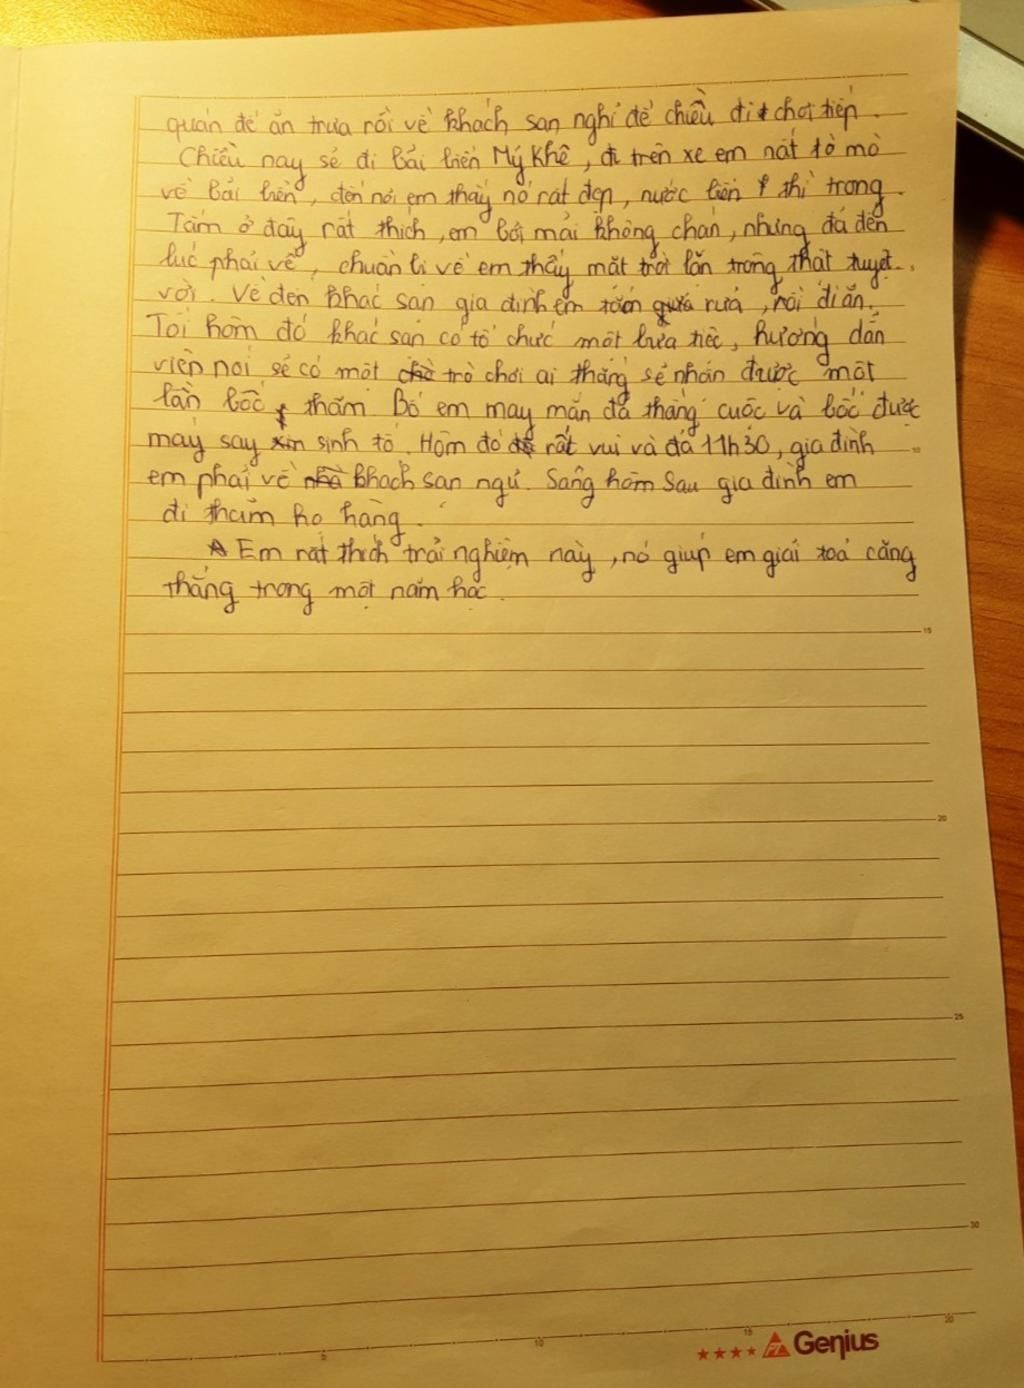 quán để ăn trưa rồi về khách sạn nghỉ để chiều đi chơi tiếp.
Chiều nay sẽ đi bãi biển Mỹ Khê, đi trên xe em rất tò mò
về bãi biển, đến nơi em thấy nó rất đẹp, nước biển thì trong.
Tắm ở đây rất thích, em bơi mãi không chán, nhưng đã đến
lúc phải về, chuẩn bị về em thấy mặt trời lặn trông thật tuyệt
vời. Về đến khác sạn gia đình em tắm rửa, rồi đi ăn.
Tối hôm đó khác sạn có tổ chức một bữa tiệc, hướng dẫn
viên nói sẽ có một trò chơi ai thắng sẽ nhận được một
lần bốc thăm. Bố em may mắn đã thắng cuộc và bốc được
máy say sinh tố. Hôm đó rất vui và đã 11h30, gia đình
em phải về khách sạn ngủ. Sáng hôm sau gia đình em
đi thăm họ hàng.
Em rất thích trải nghiệm này, nó giúp em giải toả căng
thẳng trong một năm học.
10
15
20
25
30
5 10 15 20
Genius